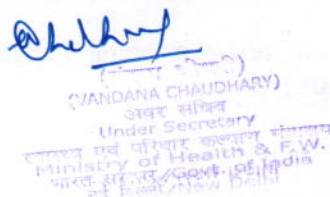 Chdhry
(वन्दना चौधरी)
(VANDANA CHAUDHARY)
अवर सचिव
Under Secretary
स्वास्थ्य एवं परिवार कल्याण मंत्रालय
Ministry of Health & F.W.
भारत सरकार/Govt. of India
नई दिल्ली/New Delhi